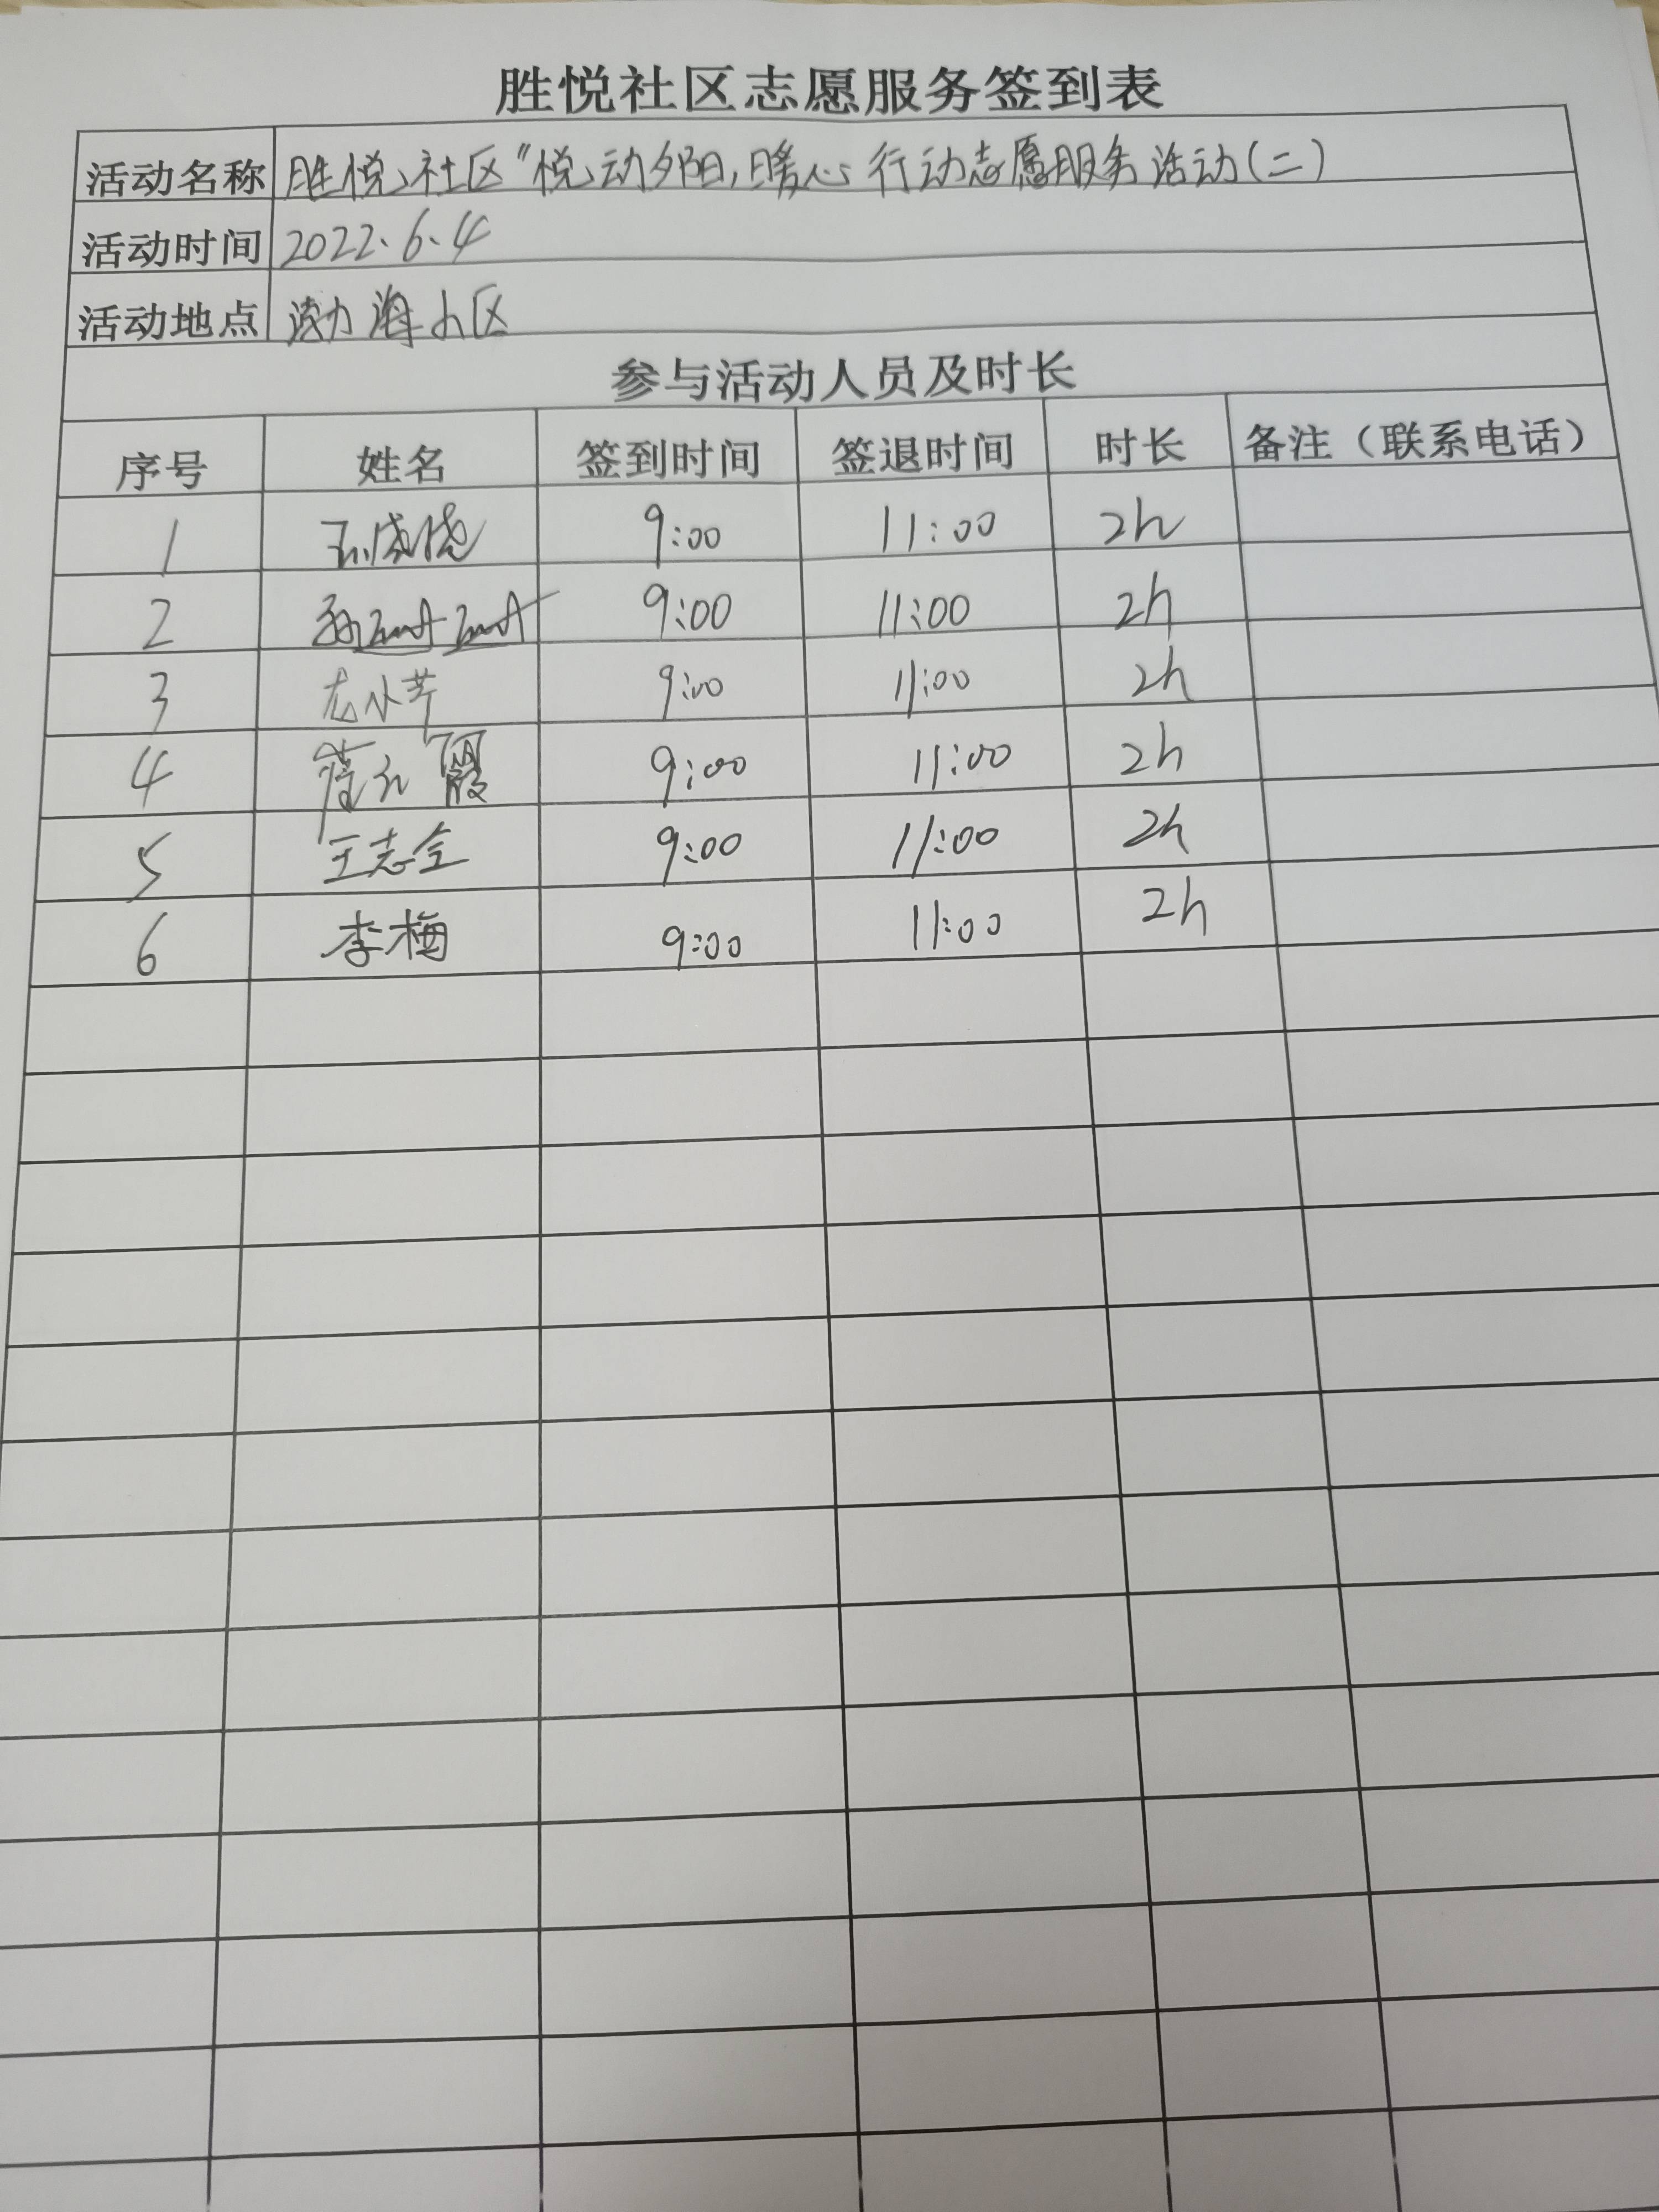 胜悦社区志愿服务签到表
活动名称 胜悦社区"悦动夕阳,暖心行动志愿服务活动(二)
活动时间 2022.6.4
活动地点 渤海小区
参与活动人员及时长
序号 姓名 签到时间 签退时间 时长 备注（联系电话）
1 9:00 11:00 2h
2 9:00 11:00 2h
3 9:00 11:00 2h
4 霞 9:00 11:00 2h
5 王志全 9:00 11:00 2h
6 李梅 9:00 11:00 2h